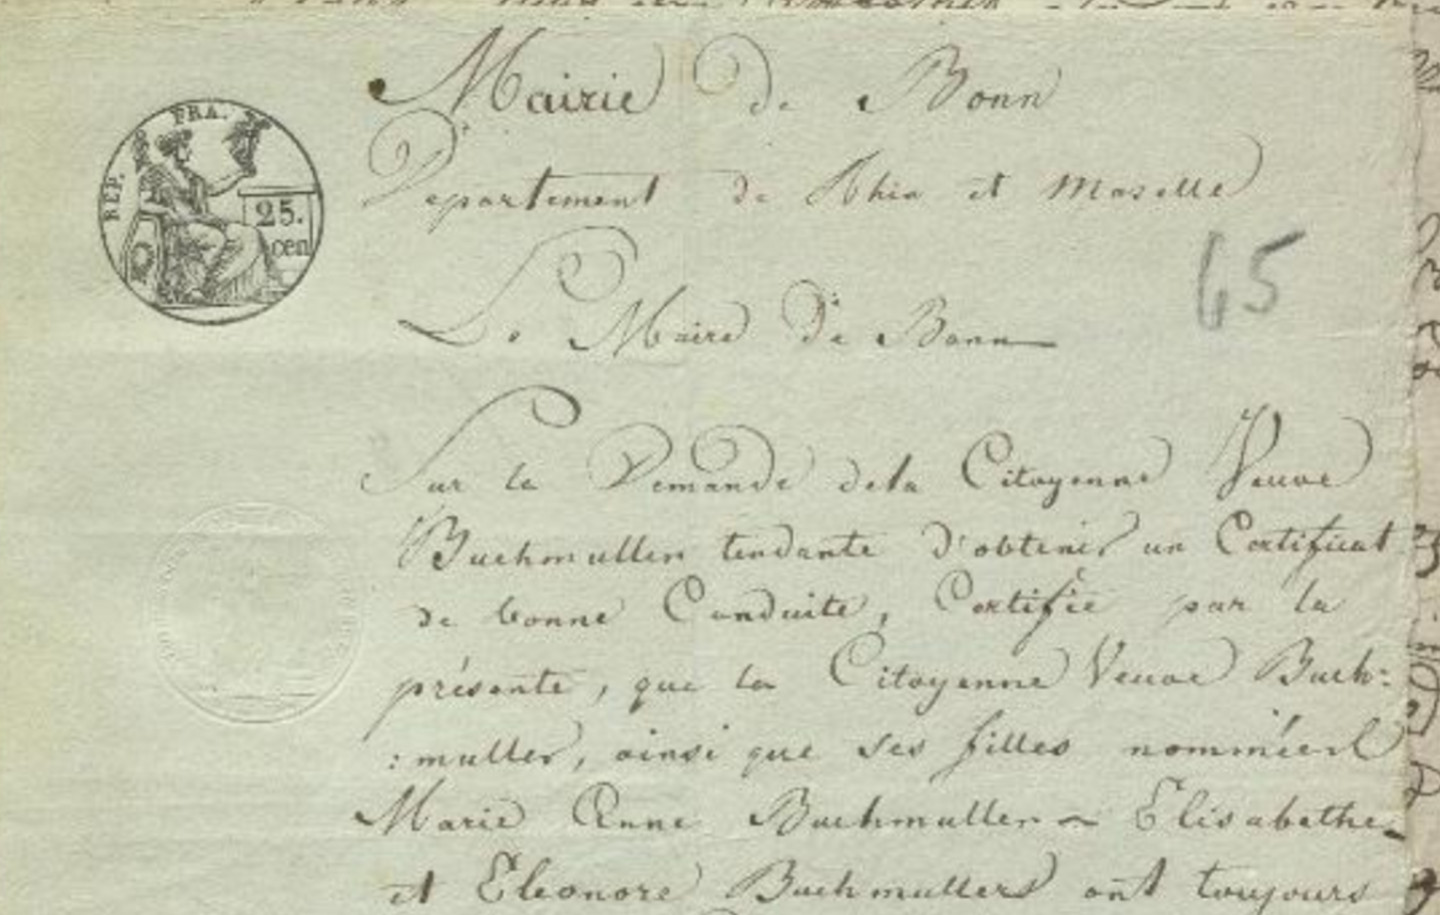 Mairie de Bonn
REP. FRA.
25.
cen
Departement de Rhin et Moselle
65
Le Maire de Bonn
Sur la Demande dela Citoyenne Veuve
Buchmuller tendante d'obtenir un Certificat
de bonne Conduite, Certifie par la
présente, que la Citoyenne Veuve Buch:
:muller, ainsi que ses filles nommées
Marie Anne Buchmuller ~ Elisabethe
et Eleonore Buchmullers ont toujours